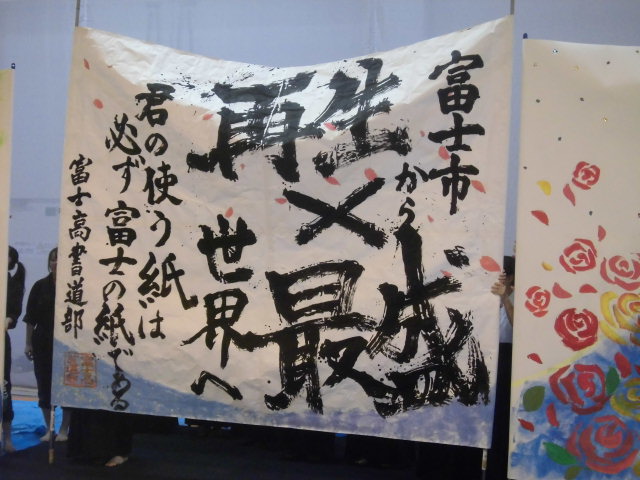 富士市から
再生
×
最盛
世界へ
君の使う紙は
必ず富士の紙である
富士高書道部